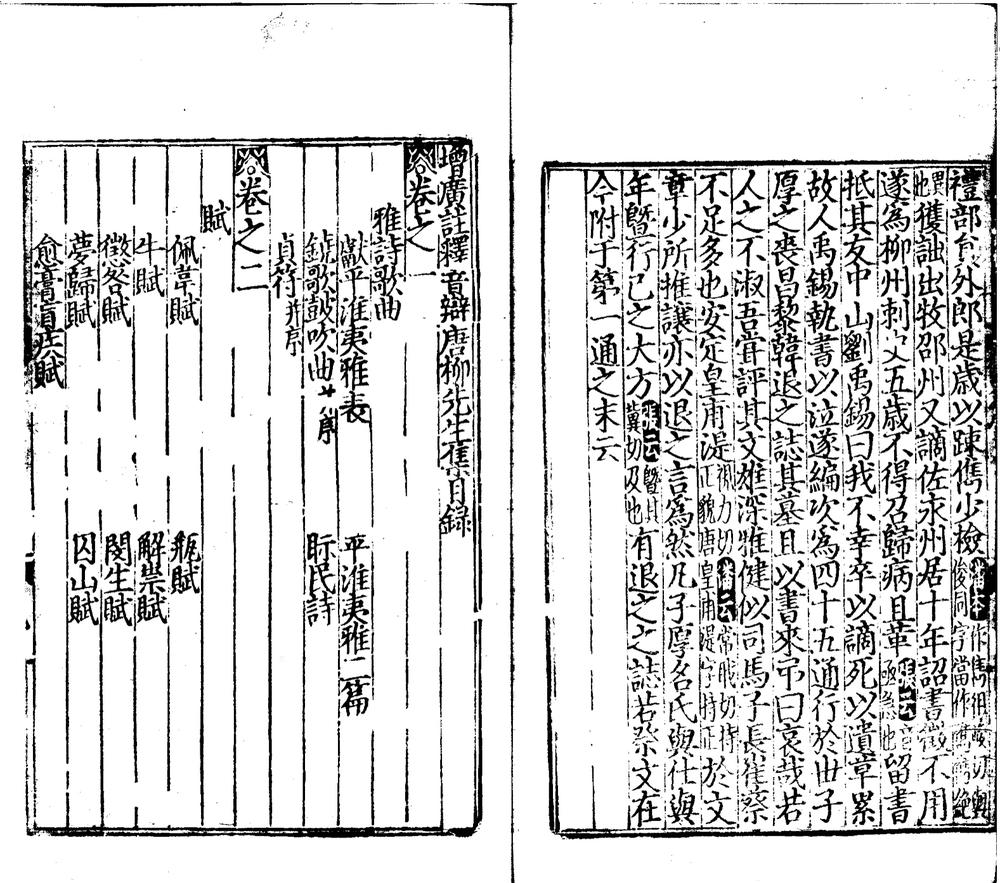 禮部員外郎是歲以踈雋少檢
獲詘出牧邵州又謫佐永州居十年詔書徵不用
遂爲柳州刺史五歲不得召歸病且革留書
抵其友中山劉禹錫曰我不幸卒以謫死以遺草累
故人禹錫執書以泣遂編次爲四十五通行於世子
厚之喪昌黎韓退之誌其墓且以書來弔曰哀哉若
人之不淑吾嘗評其文雄深雅健似司馬子長崔蔡
不足多也安定皇甫湜於文
章少所推讓亦以退之言爲然凡子厚名氏與仕與
年曁行己之大方有退之之誌若祭文在
今附于第一通之末云
增廣註釋音辯唐柳先生集目錄
卷之一
雅詩歌曲
獻平淮夷雅表 平淮夷雅二篇
鐃歌鼓吹曲并序 眎民詩
貞符并序
卷之二
賦
佩韋賦 瓶賦
牛賦 解祟賦
懲咎賦 閔生賦
夢歸賦 囚山賦
愈膏肓疾賦